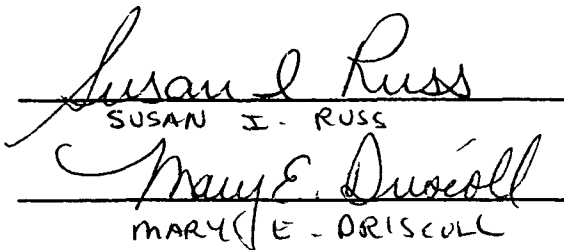 Susan I Russ
SUSAN I. RUSS
Mary E. Driscoll
MARY E. DRISCOLL